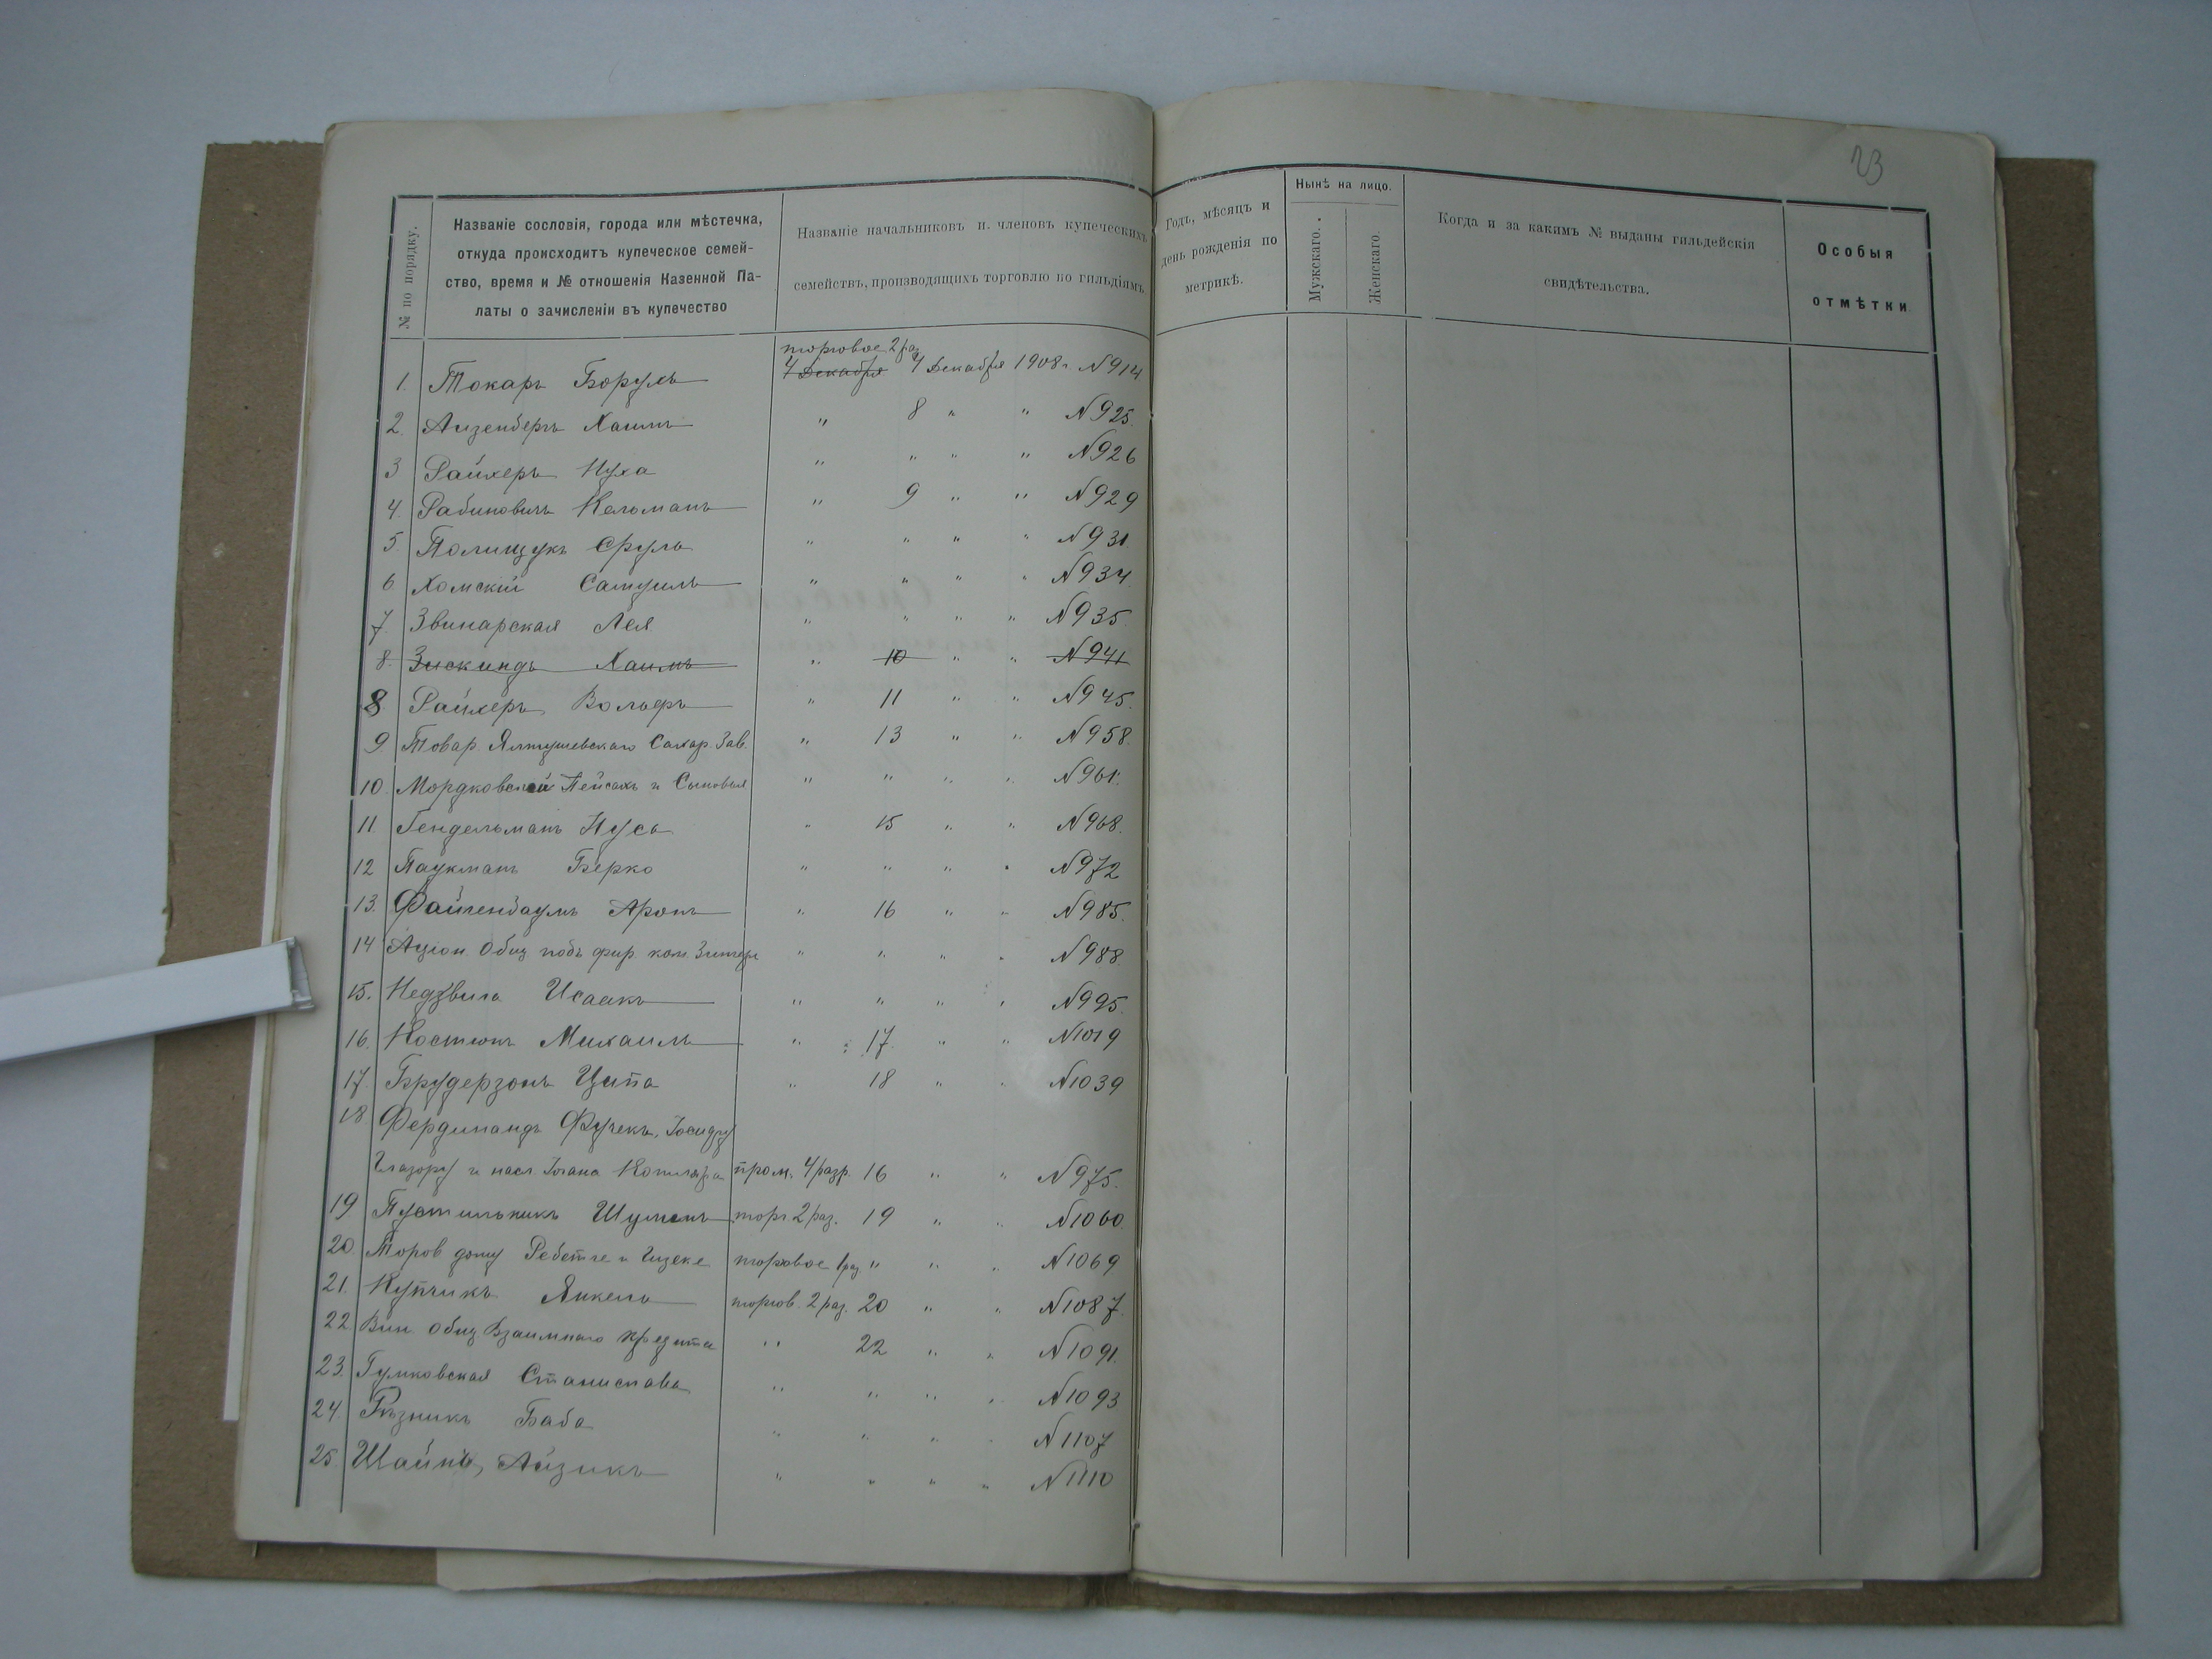 23
№ по порядку.
Названіе сословія, города или мѣстечка,
откуда происходитъ купеческое семей-
ство, время и № отношенія Казенной Па-
латы о зачисленіи въ купечество
Названіе начальниковъ и. членовъ купеческихъ
семействъ, производящихъ торговлю по гильдіямъ.
Годъ, мѣсяцъ и
день рожденія по
метрикѣ.
Нынѣ на лицо.
Мужскаго.
Женскаго.
Когда и за какимъ № выданы гильдейскія
свидѣтельства.
Особыя
отмѣтки
торговое 2 раз.
1. Токарь Борухъ 4 Декабря 4 Декабря 1908 г. № 914
2. Аизенбергъ Хаимъ " 8 " " № 925.
3 Райхеръ Нуха " " " " № 926
4. Рабиновичъ Кельманъ " 9 " " № 929
5. Полищукъ Сруль " " " " № 931
6. Хомскій Самуилъ " " " " № 934
7. Звинарская Лея " " " " № 935.
8. Зискиндъ Хаимъ " 10 " " № 941
8 Райхеръ Вольфъ " 11 " " № 945.
9 Товар. Ялтушевскаго Сахар. Зав. " 13 " " № 958.
10. Мордковскій Пейсахъ и Сыновья " " " " № 961.
11. Гендельманъ Нуса " 15 " " № 968.
12 Паукманъ Берко " " " " № 972
13. Файгенбаумъ Аронъ " 16 " " № 985.
14 Акціон. Общ подъ фир. ком. Зингеръ " " " " № 988.
15. Недзвига Исаакъ " " " " № 995.
16. Костюкъ Михаилъ " 17. " " № 1019
17. Брудерзонъ Ципа " 18 " " № 1039
18. Фердинандъ Фучекъ,
и насл. Іогана пром. 4 разр. 16 " " № 975.
19 Пустильникъ Шулимъ торг. 2 раз. 19 " " № 1060.
20. Торгов дому и торговое 1 раз " " " № 1069
21. Купчикъ Янкель торгов. 2 раз. 20 " " № 1087.
22. Вин. Общ Взаимнаго кредита " 22 " " № 1091.
23. Гулковская Станислава " " " " № 1093
24. Рѣзникъ Баба " " " " № 1107
25. Шайнъ, Айзикъ " " " " № 1110